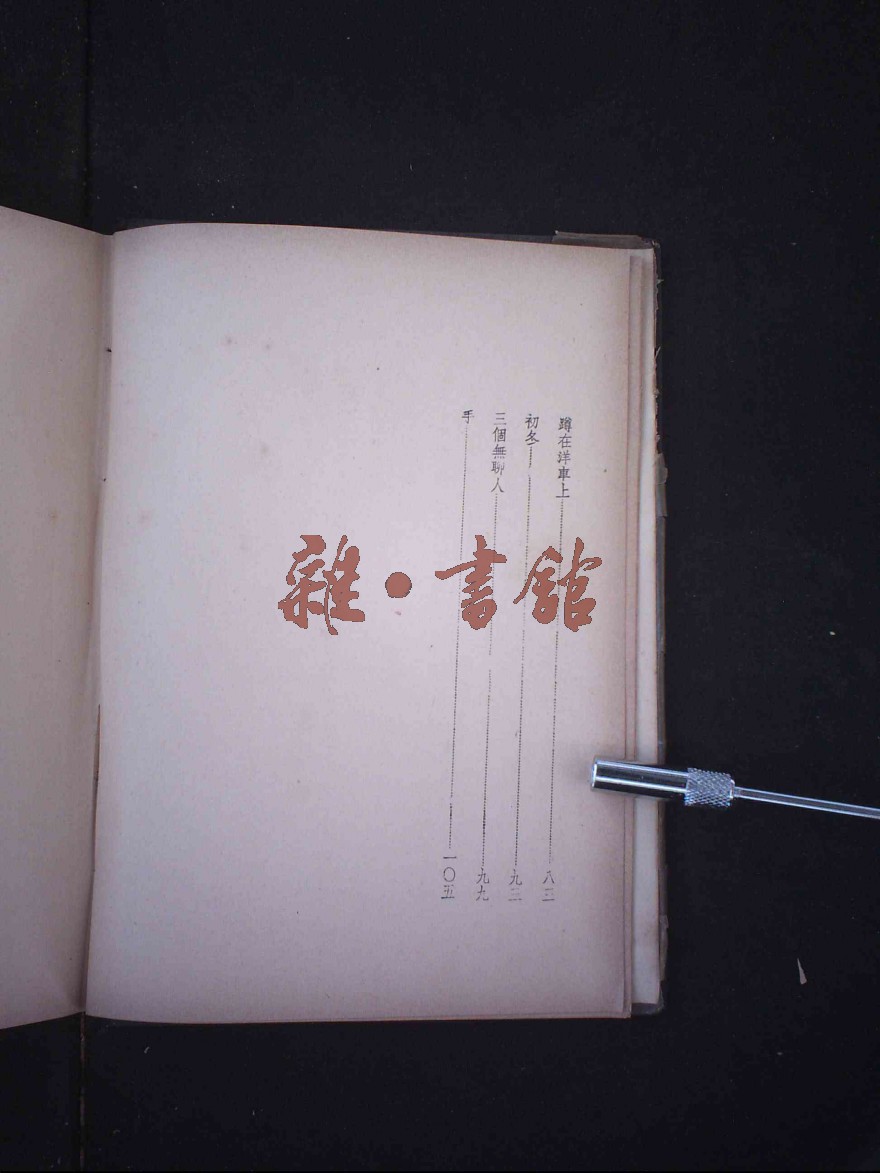 蹲在洋車上 八三
初冬 九三
三個無聊人 九九
手 一〇五
雜·書館